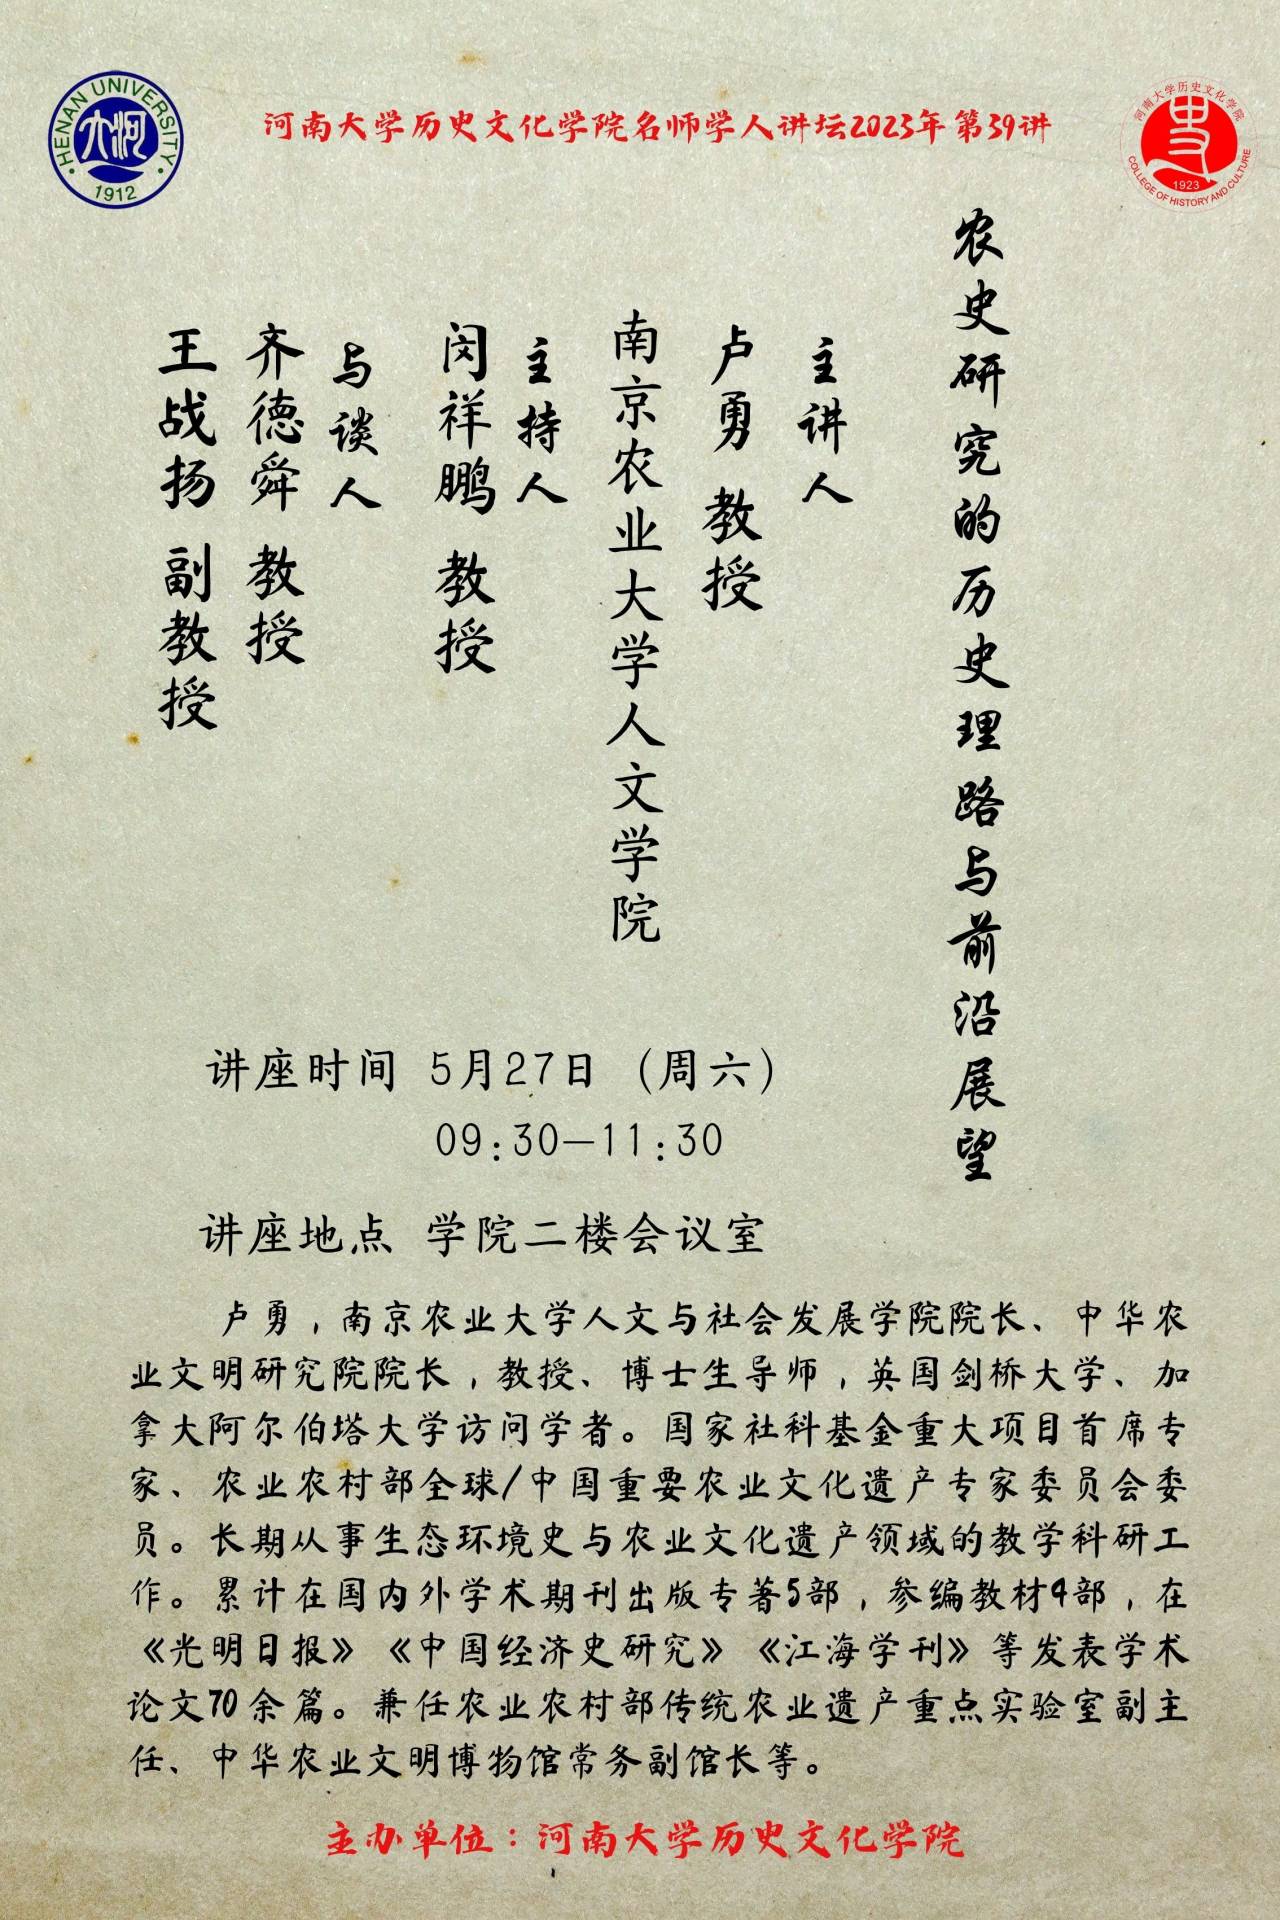 HENAN UNIVERSITY
大河
1912
河南大学历史文化学院名师学人讲坛2023年第39讲
河南大学历史文化学院
史
1923
COLLEGE OF HISTORY AND CULTURE
农史研究的历史理路与前沿展望
主讲人
卢勇 教授
南京农业大学人文学院
主持人
闵祥鹏 教授
与谈人
齐德舜 教授
王战扬 副教授
讲座时间 5月27日（周六）
09:30—11:30
讲座地点 学院二楼会议室
卢勇，南京农业大学人文与社会发展学院院长、中华农
业文明研究院院长，教授、博士生导师，英国剑桥大学、加
拿大阿尔伯塔大学访问学者。国家社科基金重大项目首席专
家、农业农村部全球/中国重要农业文化遗产专家委员会委
员。长期从事生态环境史与农业文化遗产领域的教学科研工
作。累计在国内外学术期刊出版专著5部，参编教材4部，在
《光明日报》《中国经济史研究》《江海学刊》等发表学术
论文70余篇。兼任农业农村部传统农业遗产重点实验室副主
任、中华农业文明博物馆常务副馆长等。
主办单位：河南大学历史文化学院